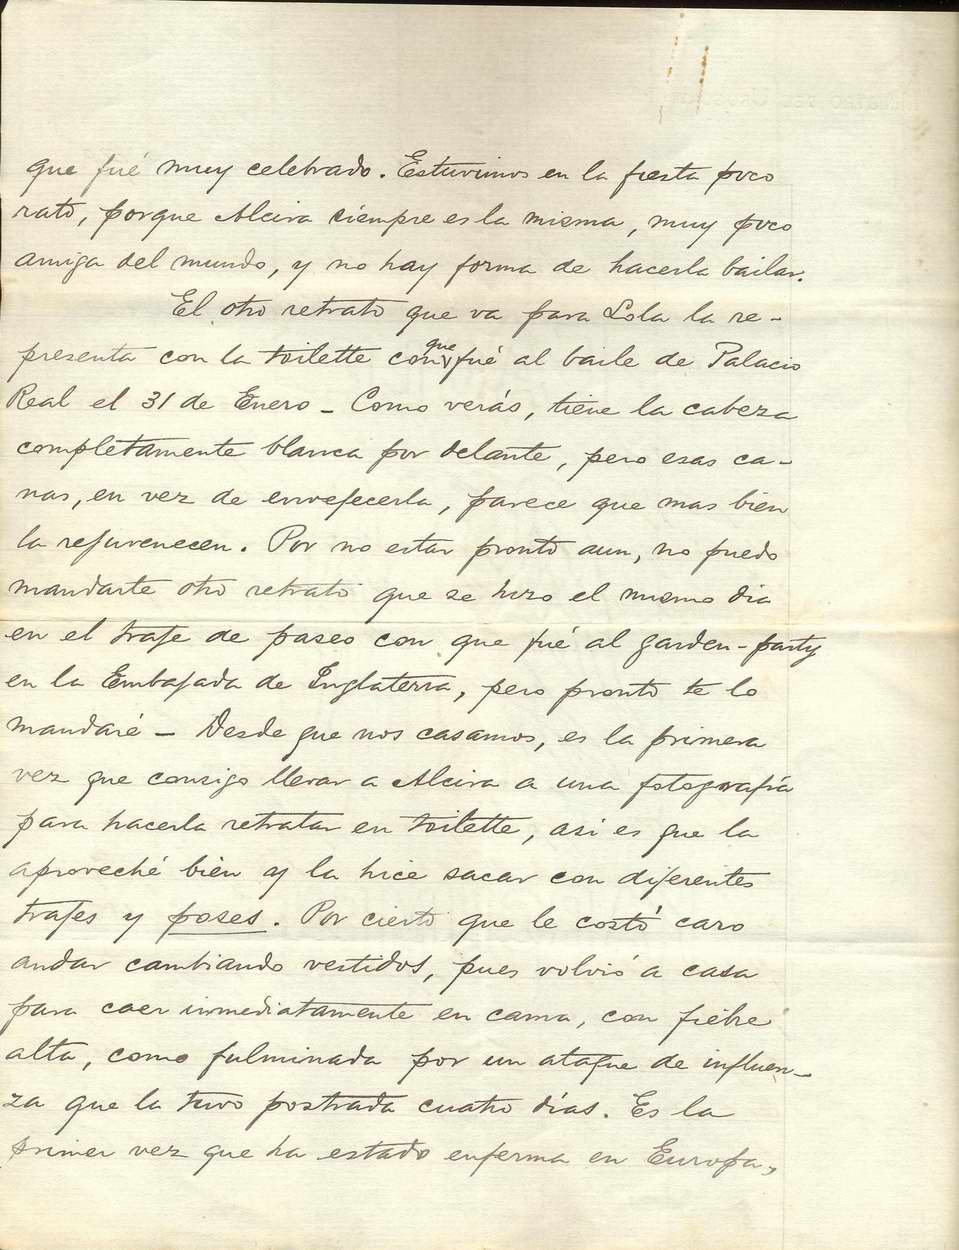 que fué muy celebrado. Estuvimos en la fiesta poco
rato, porque Alcira siempre es la misma, muy poco
amiga del mundo, y no hay forma de hacerla bailar.
El otro retrato que va para Lola la re-
presenta con la toilette con que fué al baile de Palacio
Real el 31 de Enero - Como verás, tiene la cabeza
completamente blanca por delante, pero esas ca-
nas, en vez de envejecerla, parece que mas bien
la rejuvenecen. Por no estar pronto aun, no puedo
mandarte otro retrato que se hizo el mismo dia
en el traje de paseo con que fué al garden-party
en la Embajada de Inglaterra, pero pronto te lo
mandaré - Desde que nos casamos, es la primera
vez que consigo llevar a Alcira a una fotografía
para hacerla retratar en toilette, asi es que la
aproveché bien y la hice sacar con diferentes
trajes y poses. Por cierto que le costó caro
andar cambiando vestidos, pues volvió a casa
para caer inmediatamente en cama, con fiebre
alta, como fulminada por un ataque de influen-
za que la tuvo postrada cuatro días. Es la
primer vez que ha estado enferma en Europa,